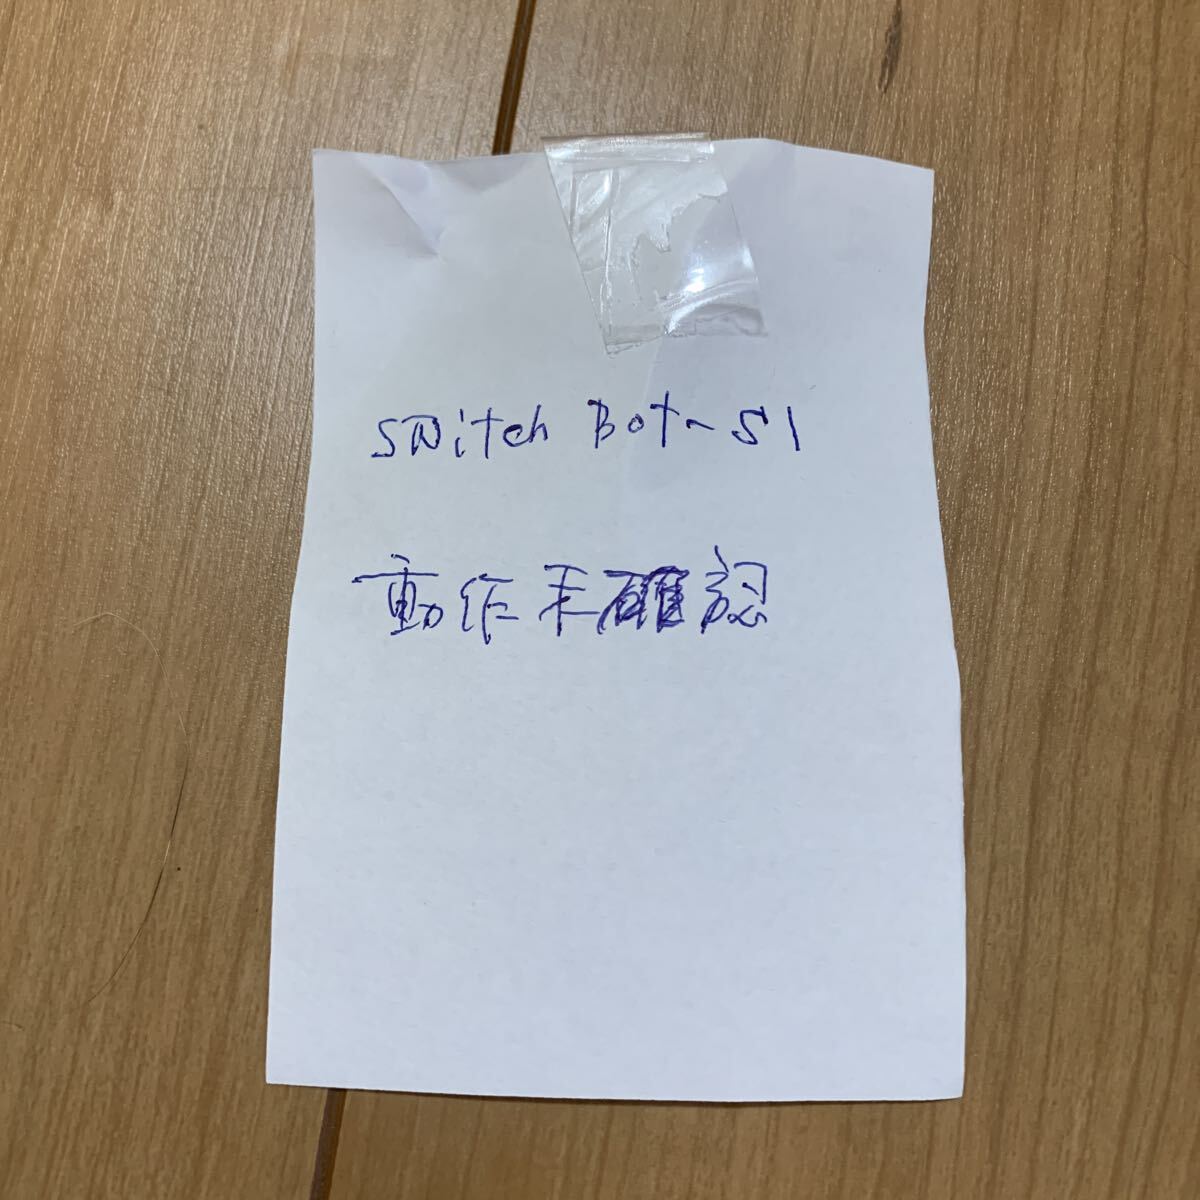 switch Bot-S1
動作未確認